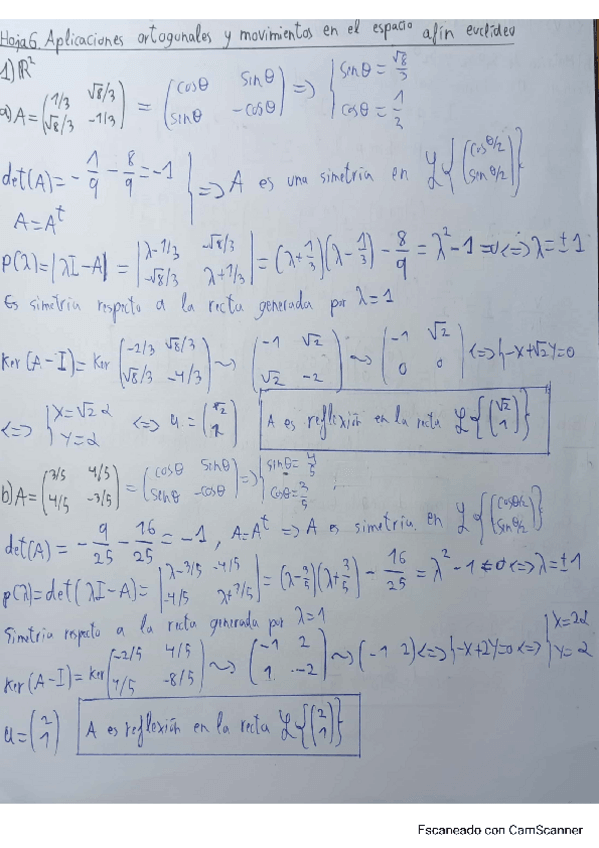 Hoja 6. Aplicaciones ortogonales y movimientos en el espacio afín euclídeo
1) ℝ²
a) A = (1/3 √8/3; √8/3 -1/3) = (cosθ sinθ; sinθ -cosθ) => { sinθ = √8/3; cosθ = 1/3
det(A) = -1/9 - 8/9 = -1
A = Aᵗ } => A es una simetría en ℒ{(cosθ/2; senθ/2)}
P(λ) = |λI-A| = |λ-1/3 -√8/3; -√8/3 λ+1/3| = (λ+1/3)(λ-1/3) - 8/9 = λ²-1 = 0 <=> λ = ±1
Es simetría respecto a la recta generada por λ=1
Ker(A-I) = Ker(-2/3 √8/3; √8/3 -4/3) ~> (-1 √2; √2 -2) ~> (-1 √2; 0 0) <=> {-x+√2y=0
<=> { x=√2α; y=α <=> u = (√2; 1) A es reflexión en la recta ℒ{(√2; 1)}
b) A = (3/5 4/5; 4/5 -3/5) = (cosθ sinθ; senθ -cosθ) => { sinθ = 4/5; cosθ = 3/5 ;
det(A) = -9/25 - 16/25 = -1, A=Aᵗ => A es simetría en ℒ{(cosθ/2; sinθ/2)}
p(λ) = det(λI-A) = |λ-3/5 -4/5; -4/5 λ+3/5| = (λ-3/5)(λ+3/5) - 16/25 = λ²-1 = 0 <=> λ = ±1
Simetría respecto a la recta generada por λ=1
Ker(A-I) = Ker(-2/5 4/5; 4/5 -8/5) ~> (-1 2; 1 -2) ~> (-1 2) <=> {-x+2y=0 <=> { x=2α; y=α
u = (2; 1) A es reflexión en la recta ℒ{(2; 1)}
Escaneado con CamScanner